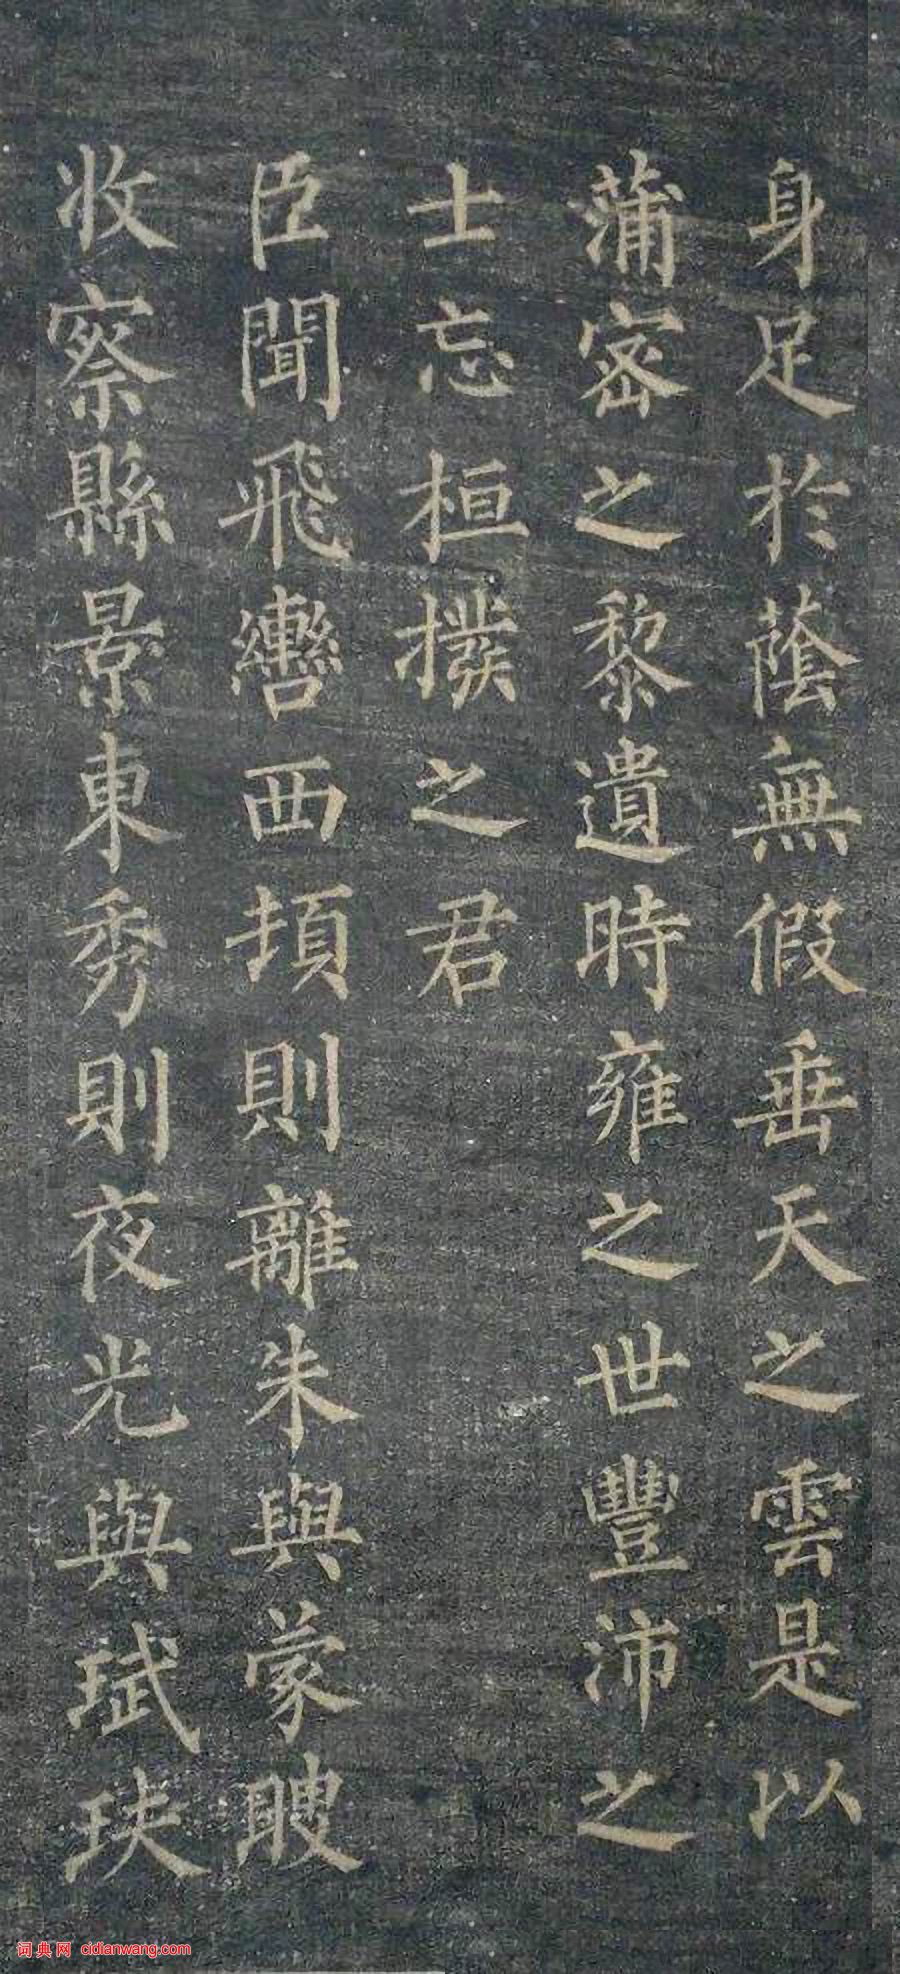 身足於蔭無假垂天之雲是以
蒲宻之黎遺時雍之世豐沛之
士忘桓撥之君
臣聞飛轡西頓則離朱與蒙瞍
收察縣景東秀則夜光與珷玞
词典网 cidianwang.com